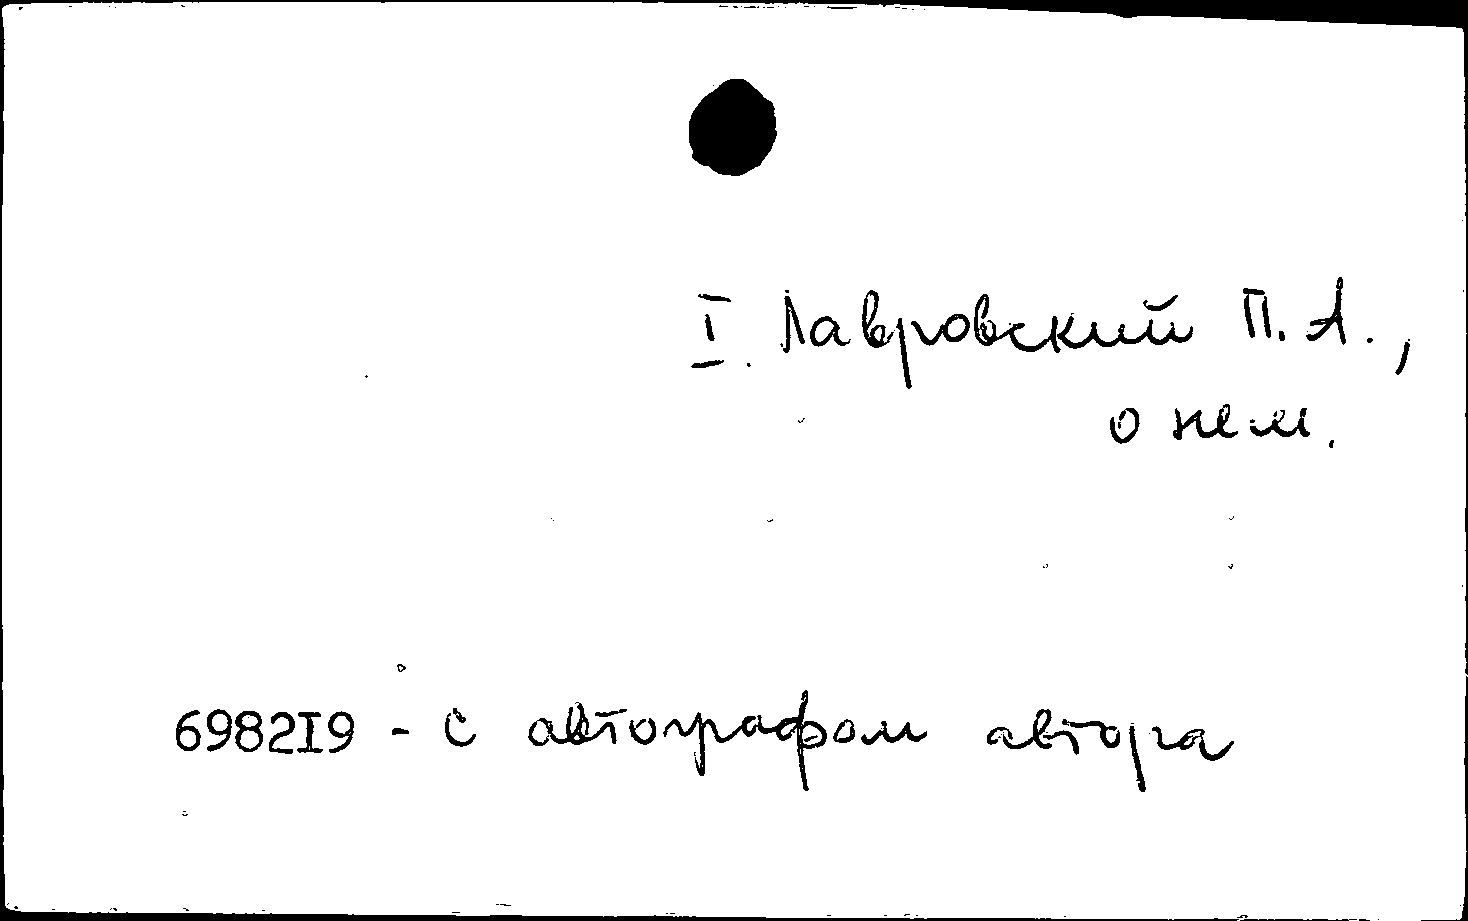 I. Лавровский П. А.,
о нем.
698219 - с автографом автора